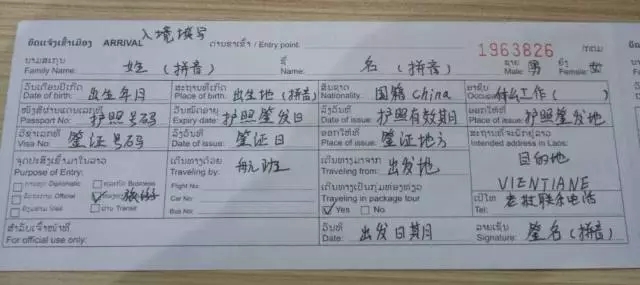 ບັດແຈ້ງເຂົ້າເມືອງ ARRIVAL 入境填写 ດ່ານຂາເຂົ້າ / Entry point:
1963826 /ກຕມ
ນາມສະກຸນ ຊື່ ຊາຍ ຍິງ
Family Name: 姓 (拼音) Name: 名 (拼音) Male: 男 Female: 女
ວັນເດືອນປີເກີດ ສະຖານທີ່ເກີດ ສັນຊາດ ອາຊີບ
Date of birth: 出生年月 Place of birth: 出生地 (拼音) Nationality: 国籍 China 什么工作 ( )
ໜັງສືຜ່ານແດນເລກທີ ວັນໝົດອາຍຸ ລົງວັນທີ ອອກໃຫ້ທີ່
Passport No: 护照号码 Expiry date: 护照签发日 Date of issue: 护照有效期 Place of issue: 护照签发地
ວີຊາເລກທີ ລົງວັນທີ ອອກໃຫ້ທີ່ ສະຖານທີ່ພັກຢູ່ລາວ
Visa No: 签证号码 Date of issue: 签证日 Place of issue: 签证地方 Intended address in Laos:
目的地
VIENTIANE
ຈຸດປະສົງເຂົ້າມາໃນລາວ ເດີນທາງດ້ວຍ ເດີນທາງມາຈາກ
Purpose of Entry: Traveling by: 航班 Traveling from: 出发地
ການທູດ Diplomatic ທຸລະກິດ Business Flight No: ເດີນທາງເປັນກຸ່ມທ່ອງທ່ຽວ
Official 旅游 Car No: Traveling in package tour ເບີໂທ
ຢ້ຽມຢາມ Visit ຜ່ານ Transit Bus No: Yes No Tel: 老挝联系电话
ສຳລັບເຈົ້າໜ້າທີ່ ວັນທີ ລາຍເຊັນ
For official use only: Date: 出发日期月 Signature: 签名 (拼音)